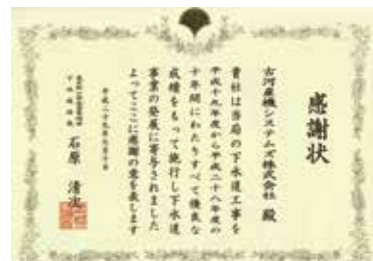 感謝状
古河産機システムズ株式会社 殿
貴社は当局の下水道工事を
平成十九年度から平成二十八年度の
十年間にわたりすべて優良な
成績をもって施行し下水道
事業の発展に寄与されました
よってここに感謝の意を表します
平成二十九年九月十日
石原 清次